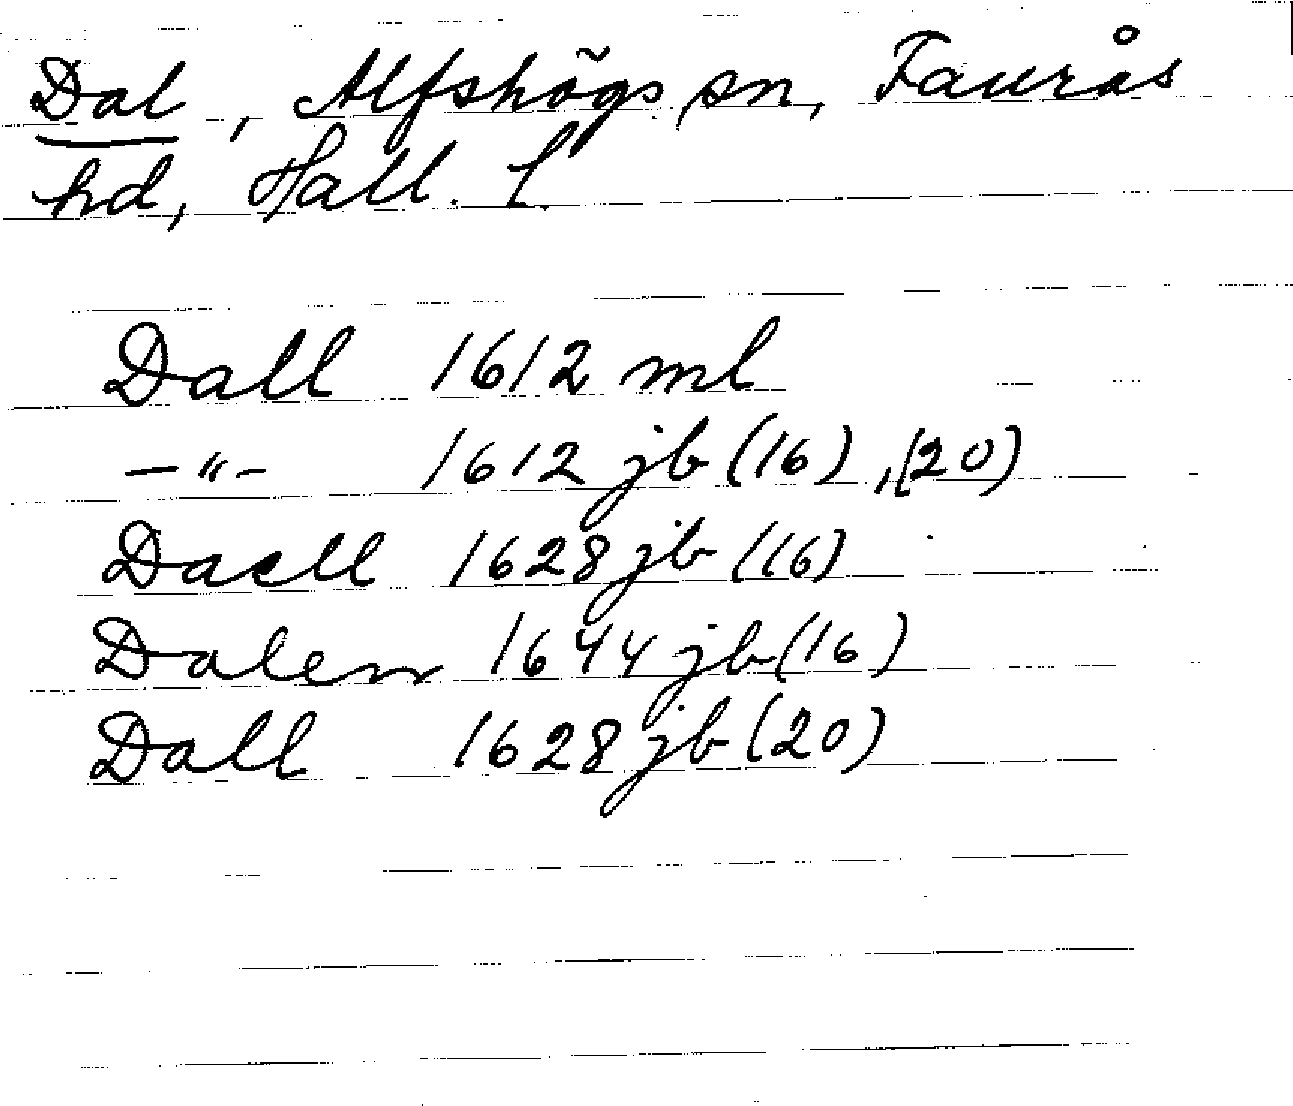 Dal, Alfshögs sn, Faurås
hd, Hall. l.
Dall 1612 ml
—"— 1612 jb (16), (20)
Daell 1628 jb (16)
Dalen 1644 jb (16)
Dall 1628 jb (20)